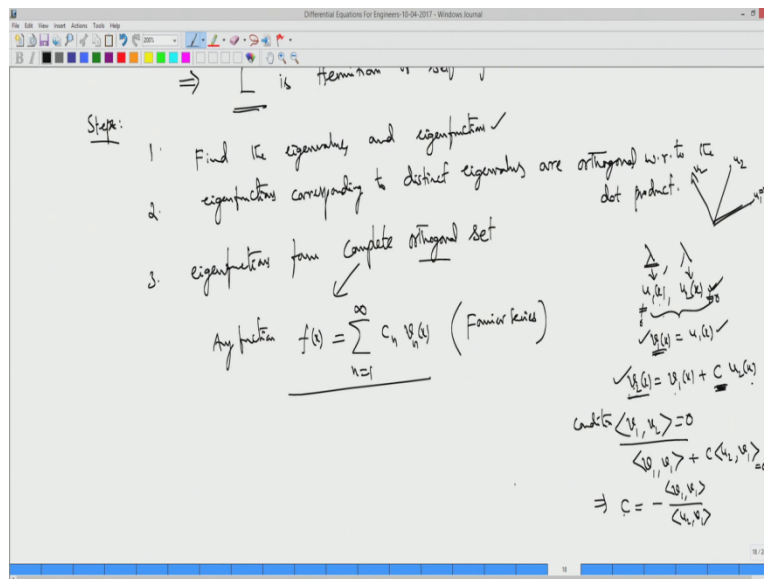 Differential Equations For Engineers-10-04-2017 - Windows Journal
File Edit View Insert Actions Tools Help
200%
B I
⇒ L is Hermitian or self
Steps:
1. Find the eigenvalues and eigenfunctions ✓
2. eigenfunctions corresponding to distinct eigenvalues are orthogonal w.r.to the
dot product.
3. eigenfunctions form complete orthogonal set
Any function f(x) = ∑_{n=1}^{∞} c_n v_n(x) (Fourier Series)
u_2
λ, λ
u_1(x), u_2(x)
✓ v_1(x) = u_1(x) ✓
✓ v_2(x) = v_1(x) + C u_2(x)
condition <v_1, v_2> = 0
<v_1, v_1> + C<u_2, v_1> = 0
⇒ C = - <v_1, v_1> / <u_2, v_1>
18